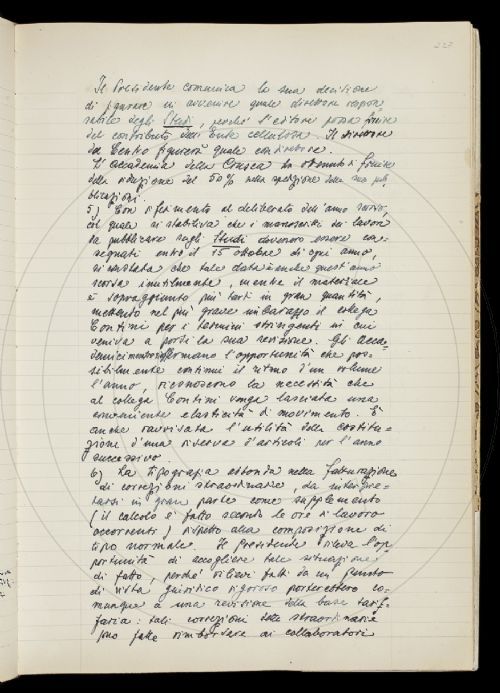 227
Il Presidente comunica la sua decisione
di figurare in avvenire quale direttore respon-
sabile degli Studi, perché l'editore possa fruire
del contributo dell'Ente cellulosa. Il direttore
del Centro figurerà quale condirettore.
L'Accademia della Crusca ha ottenuto di fruire
della riduzione del 50% nella spedizione delle sue pub-
blicazioni.
5) Con riferimento al deliberato dell'anno scorso,
col quale si stabiliva che i manoscritti dei lavori
da pubblicare negli Studi dovevano essere con-
segnati entro il 15 ottobre di ogni anno,
si constata che tale data è anche quest'anno
scorsa inutilmente, mentre il materiale
è sopraggiunto più tardi in gran quantità,
mettendo nel più grave imbarazzo il collega
Contini per i termini stringenti in cui
veniva a porsi la sua revisione. Gli Acca-
demici mentre riaffermano l'opportunità che pos-
sibilmente continui il ritmo d'un volume
l'anno, riconoscono la necessità che
al collega Contini venga lasciata una
conveniente elasticità di movimento. È
anche ravvisata l'utilità della costitu-
zione d'una riserva d'articoli per l'anno
successivo.
6) La tipografia abbonda nella fatturazione
di correzioni straordinarie, da interpre-
tarsi in gran parte come supplemento
(il calcolo è fatto secondo le ore di lavoro
occorrenti) rispetto alla composizione di
tipo normale. Il Presidente rileva l'op-
portunità di accogliere tale situazione
di fatto, perché rilievi fatti da un punto
di vista giuridico rigoroso porterebbero co-
munque a una revisione della base tarif-
faria: tali correzioni dette straordinarie
sono fatte rimborsare ai collaboratori